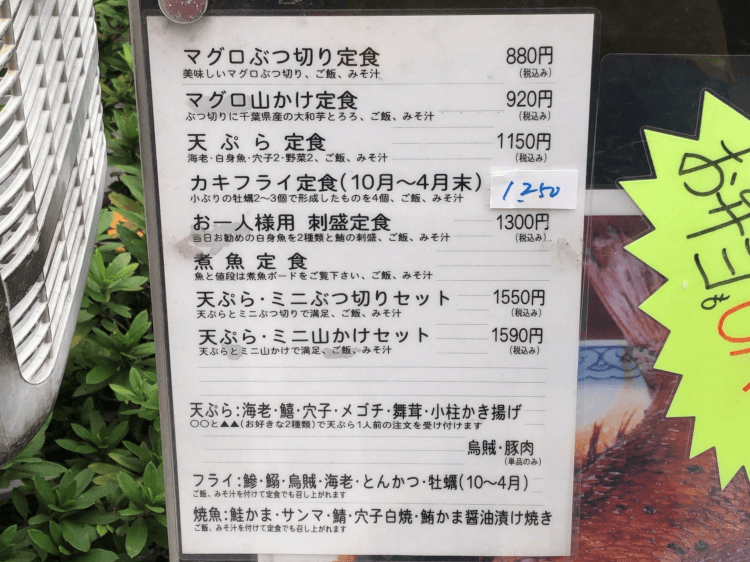 マグロぶつ切り定食 880円
美味しいマグロぶつ切り、ご飯、みそ汁 (税込み)
マグロ山かけ定食 920円
ぶつ切りに千葉県産の大和芋とろろ、ご飯、みそ汁 (税込み)
天ぷら 定食 1150円
海老・白身魚・穴子2・野菜2、ご飯、みそ汁 (税込み)
カキフライ定食(10月〜4月末) 1250
小ぶりの牡蠣2〜3個で形成したものを4個、ご飯、みそ汁
お一人様用 刺盛定食 1300円
当日お勧めの白身魚を2種類と鮪の刺盛、ご飯、みそ汁 (税込み)
煮魚定食
魚と値段は煮魚ボードをご覧下さい、ご飯、みそ汁
天ぷら・ミニぶつ切りセット 1550円
天ぷらとミニぶつ切りで満足、ご飯、みそ汁 (税込み)
天ぷら・ミニ山かけセット 1590円
天ぷらとミニ山かけで満足、ご飯、みそ汁 (税込み)
天ぷら:海老・鱚・穴子・メゴチ・舞茸・小柱かき揚げ
〇〇と▲▲(お好きな2種類)で天ぷら1人前の注文を受け付けます
烏賊・豚肉
(単品のみ)
フライ:鯵・鰯・烏賊・海老・とんかつ・牡蠣(10〜4月)
ご飯、みそ汁を付けて定食でも召し上がれます
焼魚:鮭かま・サンマ・鯖・穴子白焼・鮪かま醤油漬け焼き
ご飯、みそ汁を付けて定食でも召し上がれます
お弁当も